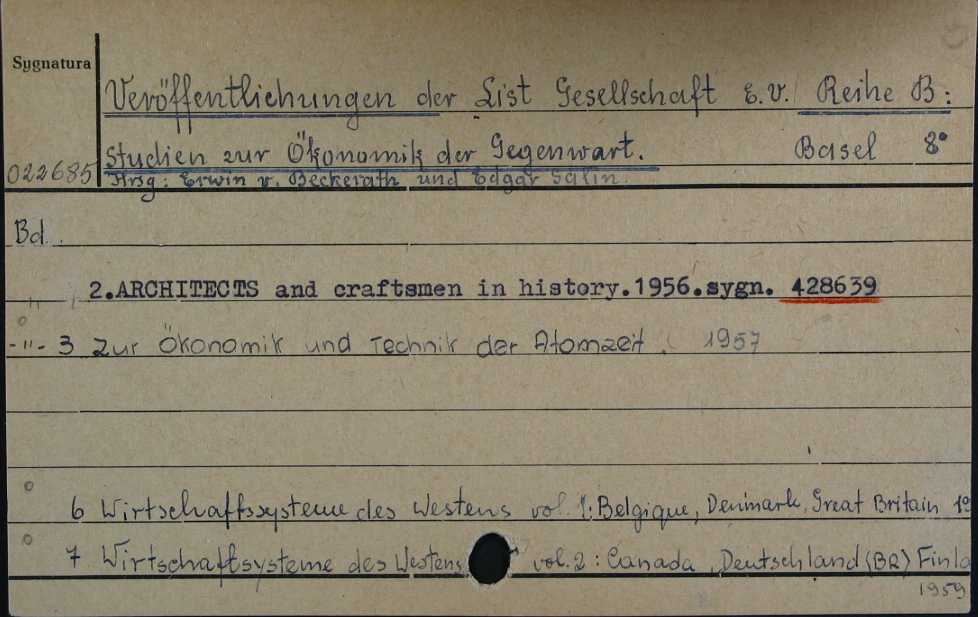 Sygnatura
Veröffentlichungen der List Gesellschaft E.V. Reihe B:
Studien zur Ökonomik der Gegenwart. Basel 8°
022685 Hrsg: Erwin v. Beckerath und Edgar Salin.
Bd.
2.ARCHITECTS and craftsmen in history.1956.sygn. 428639
-"- 3 Zur Ökonomik und Technik der Atomzeit. 1957
6 Wirtschaftssysteme des Westens vol. 1: Belgique, Denmark, Great Britain 19
7 Wirtschaftsysteme des Westens vol. 2: Canada, Deutschland (BR) Finla
1959